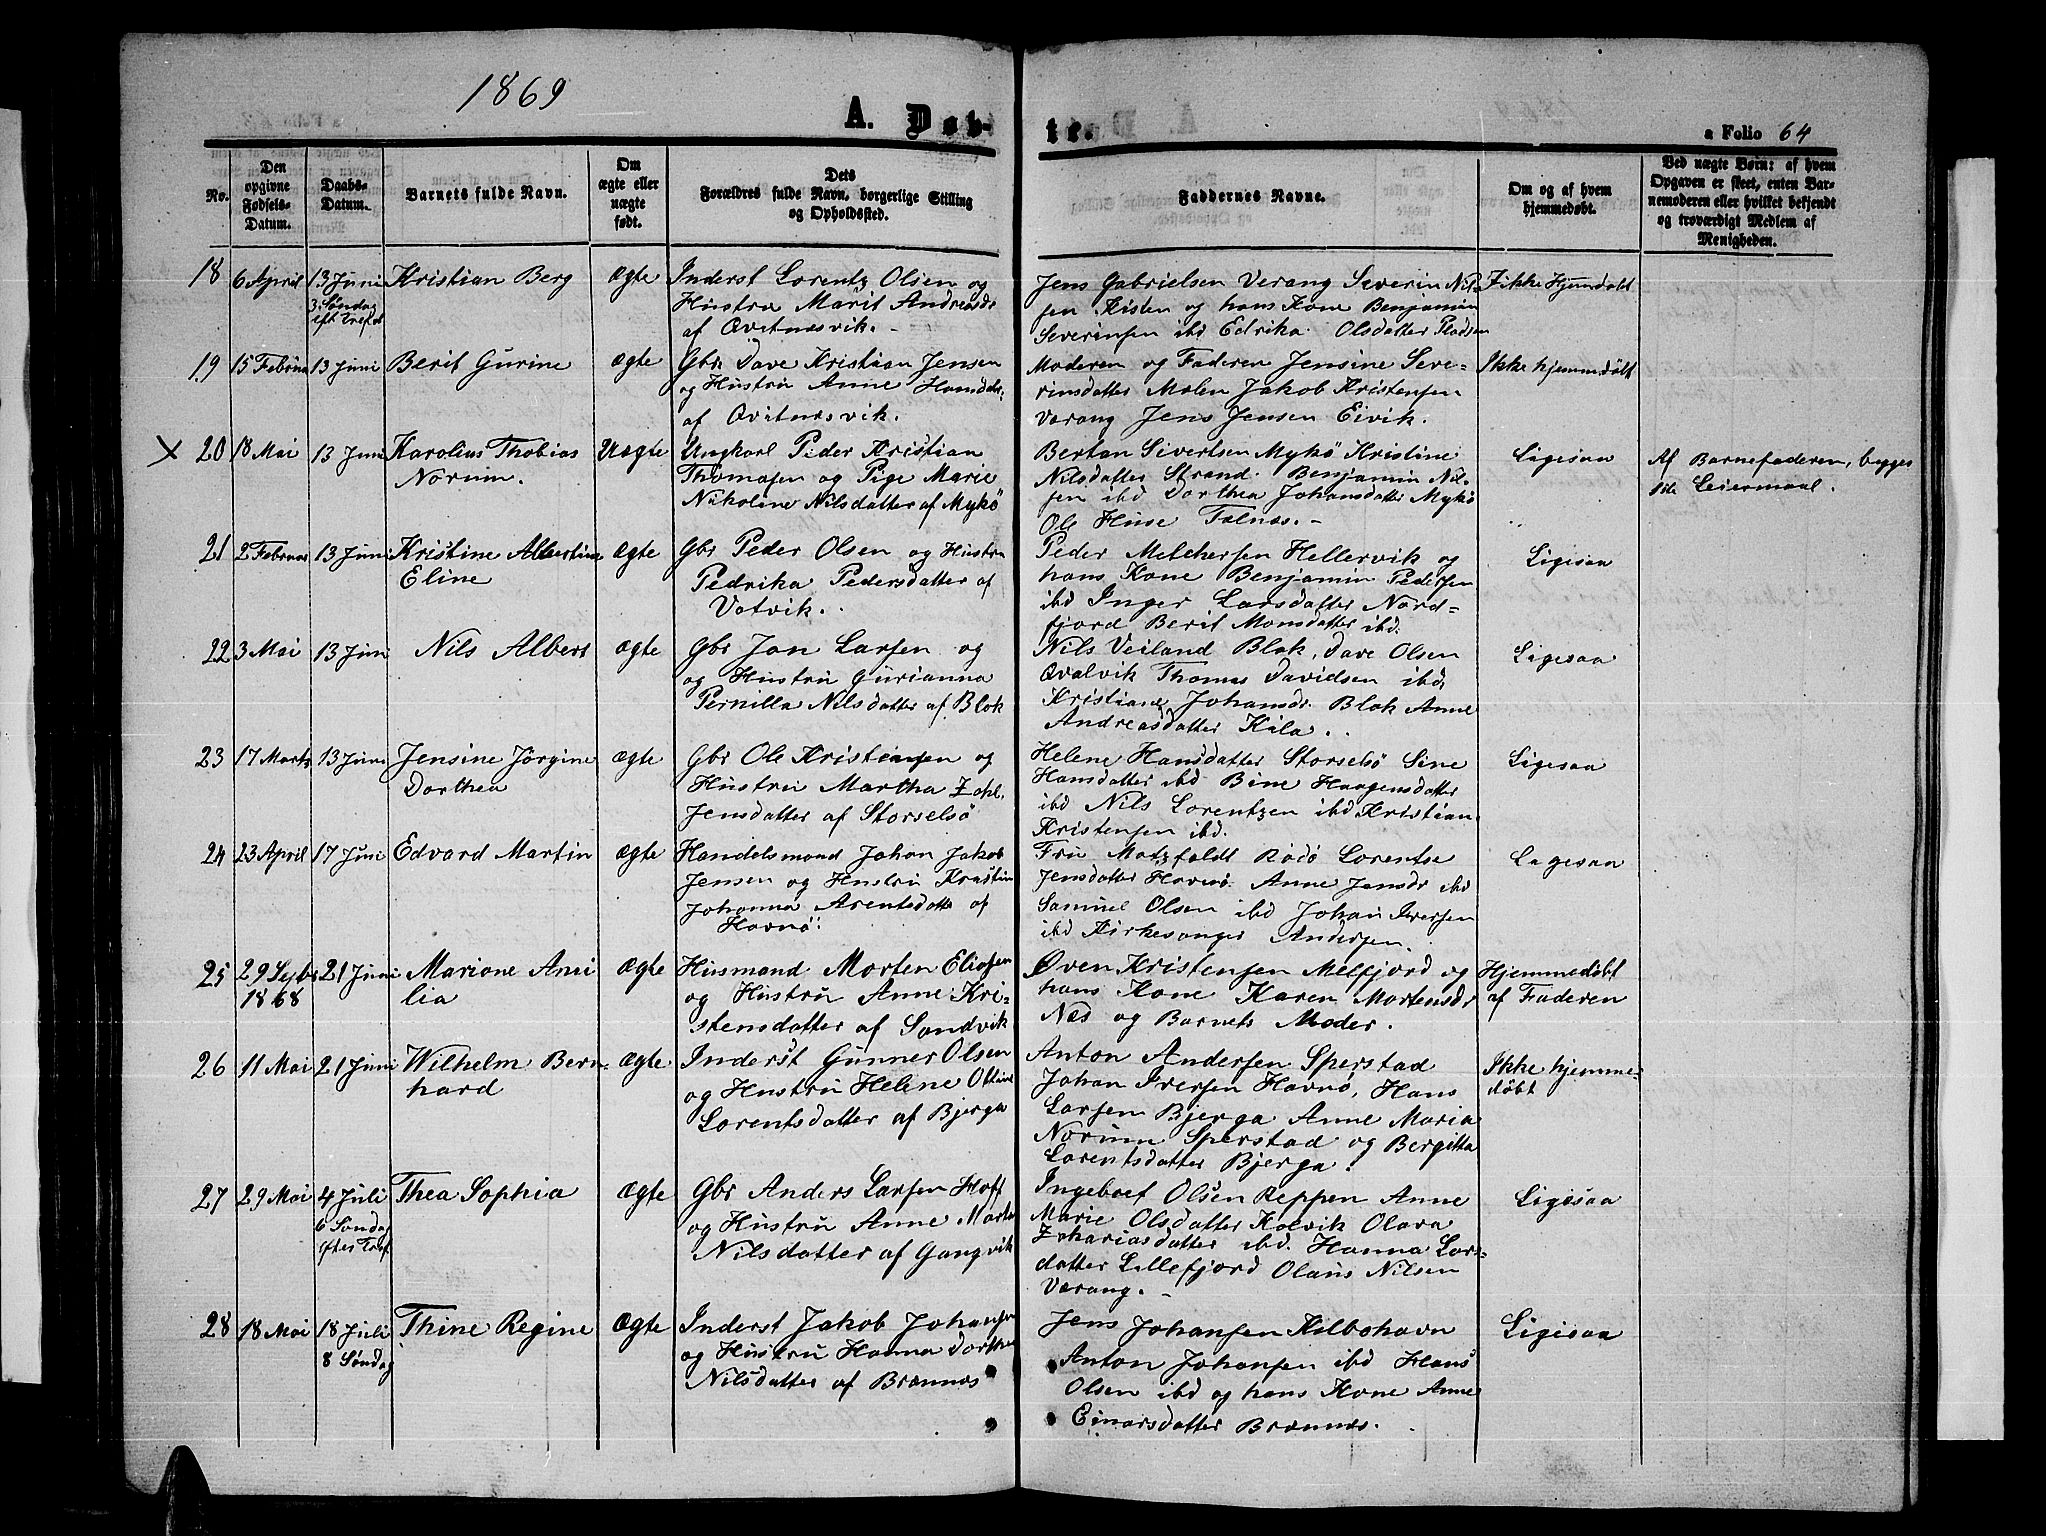 1869
A. Døb-
te.
a Folio 64
No.
Den
opgivne
Fødsels-
Datum.
Daabs-
Datum.
Barnets fulde Navn.
Om
ægte eller
uægte
født.
Dets
Forældres fulde Navn, borgerlige Stilling
og Opholdssted.
Faddernes Navne.
Om og af hvem
hjemmedøbt.
Ved uægte Børn: af hvem
Opgaven er skeet, enten Bar-
nemoderen eller hvilket bekjendt
og troværdigt Medlem af
Menigheden.
18 6 April 13 Juni Kristian Berg ægte
3. Søndag
eft Tref
Inderst Lorentz Olsen og
Hustru Marit Andreasdr
af Qvitnæsvik. -
Jens Gabrielsen Værang Severin Nil-
sen Kisten og hans Kone Benjamin
Severinsen ibd Edrika Olsdatter Pladsen
Ikke Hjemdøbt
19 15 Februar 13 Juni Berit Gurine ægte
Gbr Dave Kristian Jensen
og Hustru Anne Hansdtr.
af Qvitnæsvik.
Moderen og Faderen Jensine Seve-
rinsdatter Molen Jakob Kristensen
Værang Jens Jensen Eivik.
Ikke hjemmedøbt
X 20 18 Mai 13 Juni Karolius Thobias
Norum.
Uægte
Ungkarl Peder Kristian
Thomasen og Pige Marie
Nikoline Nilsdatter af Mykö
Bertan Sivertsen Mykö Kristine
Nilsdatter Strand. Benjamin Nil-
sen ibd Dorthea Johansdatter Mykö
Ole Huse Tælnæs. -
Ligesaa
Af Barnefaderen, begges
1ste Leiermaal.
21 2 Februar 13 Juni Kristine Albertine
Eline
ægte
Gbr Peder Olsen og Hustru
Pedrika Pedersdatter af
Votvik.
Peder Melchersen Hellervik og
hans Kone Benjamin Pedersen
ibd Inger Larsdatter Nord-
fjord Berit Monsdatter ibd.
Ligesaa
22 3 Mai 13 Juni Nils Albert ægte
Gbr Jon Larsen og
og Hustru Gurianna
Pernilla Nilsdatter af Blok
Nils Veiland Blok, Dave Olsen
Qvalvik Thomas Davidsen ibd,
Kristiane Johansdr. Blok Anne
Andreasdatter Kila.
Ligesaa
23 17 Marts 13 Juni Jensine Jörgine
Dorthea
ægte
Gbr Ole Kristiansen og
Hustru Martha
Jensdatter af Storselsö
Helene Hansdatter Storselsö Sine
Hansdatter ibd Bine Haagensdatter
ibd Nils Lorentzen ibd Kristian
Kristensen ibd.
Ligesaa
24 23 April 17 Juni Edvard Martin ægte
Handelsmand Johan Jakob
Jensen og Hustru Kristin
Johanna Arentsdatte af
Havnö.
Fru Motzfeldt Rödö Lorentse
Jensdatter Havnö. Anne Jensdr ibd
Samuel Olsen ibd Johan Iversen
ibd Kirkesanger Andersen.
Ligesaa
25 29 Septbr
1868
21 Juni Marione Ami
lia
ægte
Husmand Morten Eliasen
og Hustru Anne Kri-
stensdatter af Sandvik
Oven Kristensen Melfjord og
hans Kone Karen Mortensdr
Næs og Barnets Moder.
Hjemmedöbt
af Faderen
26 11 Mai 21 Juni Wilhelm Bern-
hard
ægte
Inderst Gunner Olsen
og Hustru Helene Ottine
Lorentsdatter af Bjerga
Anton Andersen Sperstad
Johan Iversen Havnö, Hans
Larsen Bjerga Anne Maria
Norum Sperstad og Bergitta
Lorentsdatter Bjerga.
Ikke hjemme-
döbt
27 29 Mai 4 Juli Thea Sophia ægte
6 Søndag
efter Tref.
Gbr Anders Larsen Hoff
og Hustru Anne Marta
Nilsdatter af Gangvik
Ingeboet Olsen Reppen Anne
Marie Olsdatter Kolvik Olava
Zakariasdatter ibd. Hanna Lars-
datter Lillefjord Olaus Nilsen
Værang. -
Ligesaa
28 18 Mai 18 Juli Thine Regine ægte
8 Søndag
Inderst Jakob Johansen
og Hustru Hanna Dorthea
Nilsdatter af Brænnæs
Jens Johansen Kilbohavn
Anton Johansen ibd Hans
Olsen ibd og hans Kone Anne
Einarsdatter Brænnæs.
Ligesaa